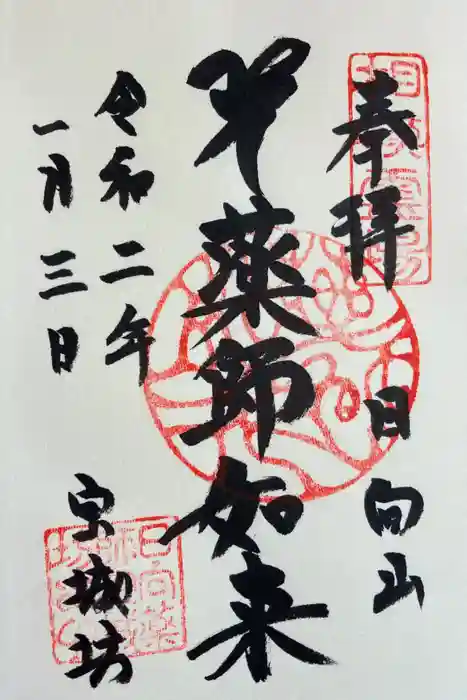 奉拝
日向山
薬師如来
令和二年
一月三日
宝城坊